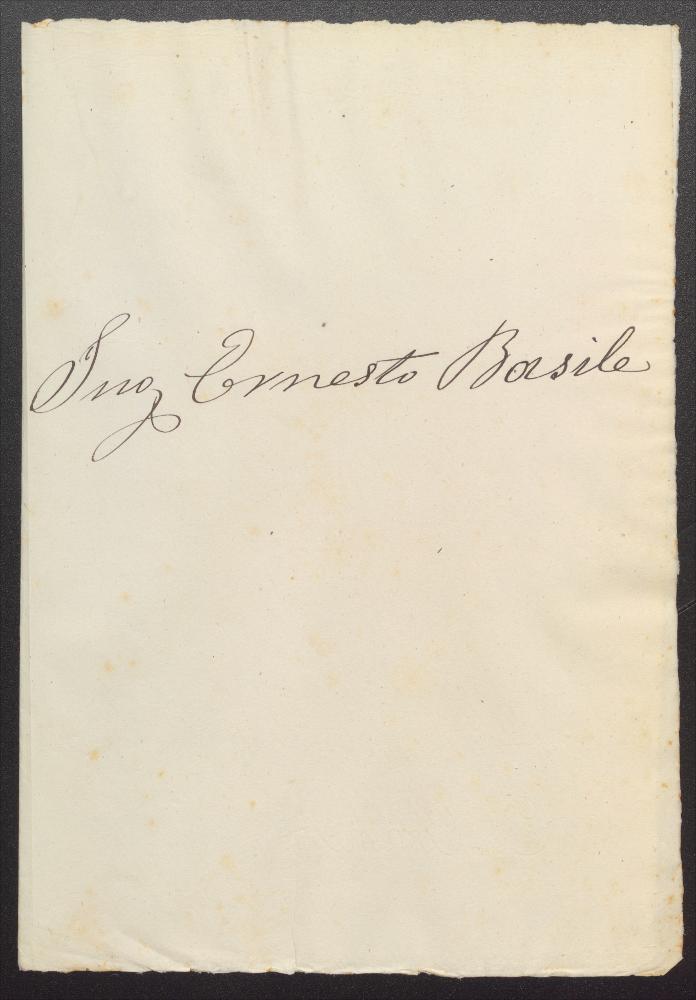 Ing Ernesto Basile